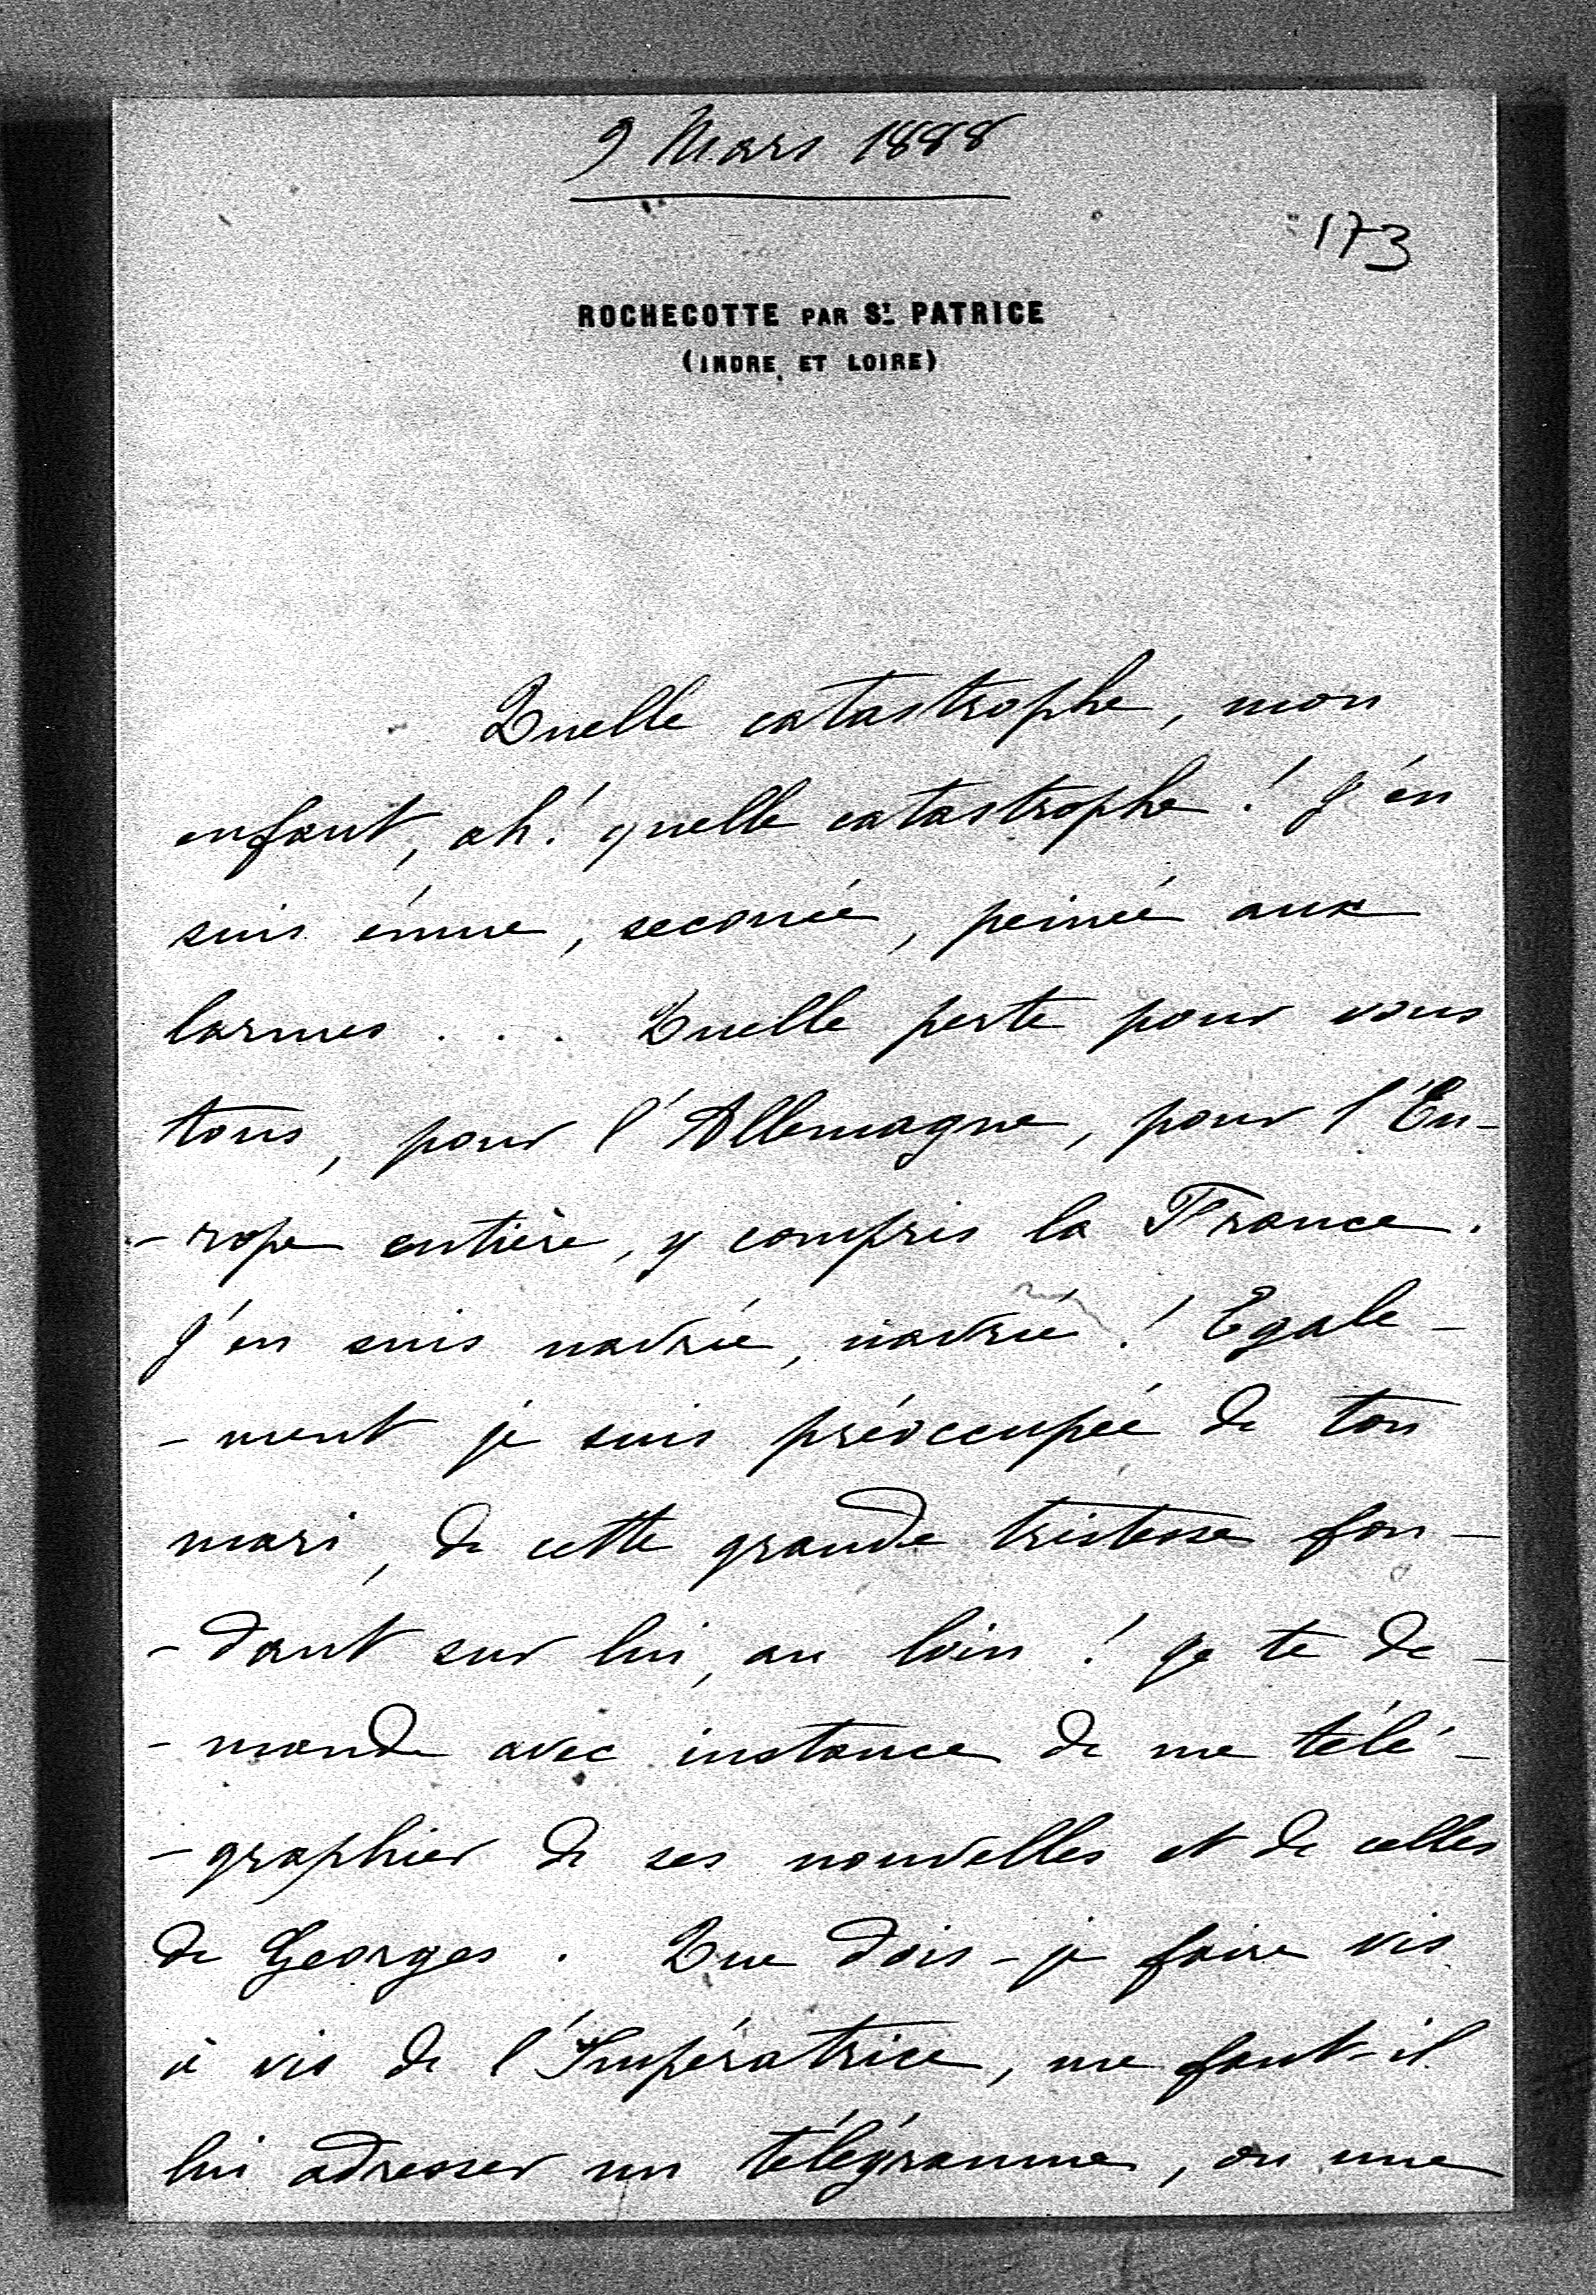 9 Mars 1888
173
ROCHECOTTE PAR ST. PATRICE
(INDRE ET LOIRE)
Quelle catastrophe, mon
enfant, ah! quelle catastrophe! J'en
suis émue, secouée, peinée aux
larmes . . . Quelle perte pour vous
tous, pour l'Allemagne, pour l'Eu-
-rope entière, y compris la France.
J'en suis navrée, navrée! Egale-
-ment je suis préoccupée de ton
mari, de cette grande tristesse fon-
-dant sur lui, au loin! Je te de-
-mande avec instance de me télé-
-graphier de ses nouvelles et de celles
de Georges. Que dois-je faire vis
à vis de l'Impératrice, me faut-il
lui adresser un télégramme, ou une